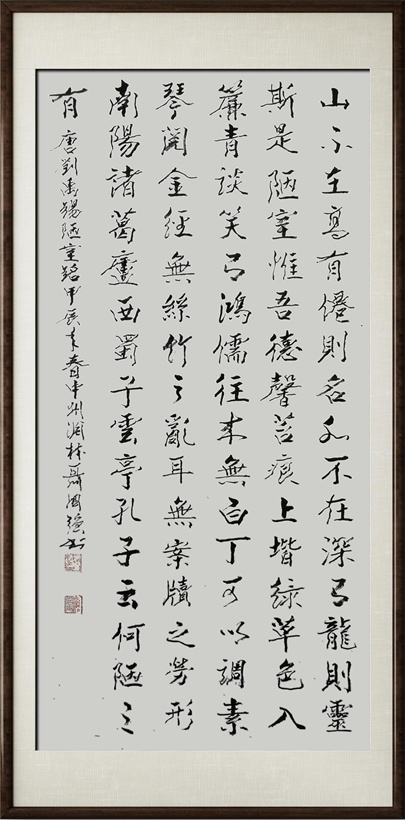 山不在高有僊則名水不在深有龍則靈
斯是陋室惟吾德馨苔痕上堦綠草色入
簾青談笑有鴻儒往來無白丁可以調素
琴閱金經無絲竹之亂耳無案牘之勞形
南陽諸葛廬西蜀子雲亭孔子云何陋之
有 唐劉禹錫陋室銘甲辰年春中州林聶國強書